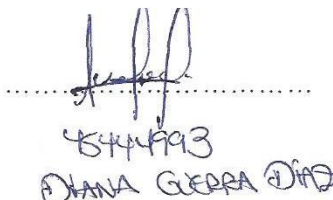 45444993
DIANA GUERRA DIAZ